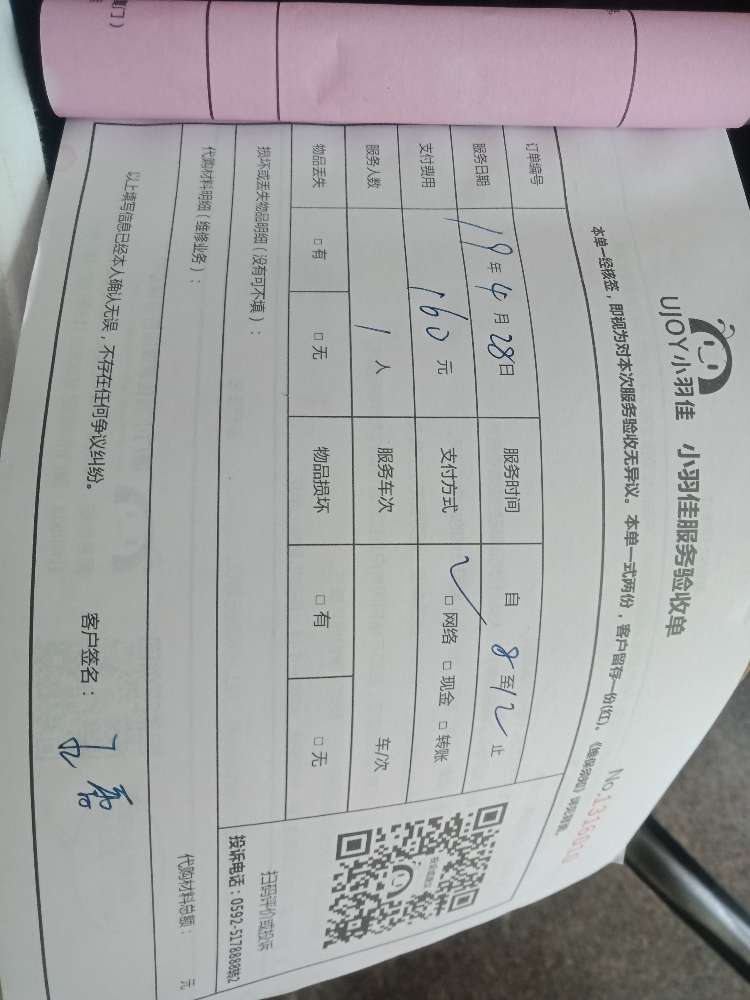 UJOY小羽佳 小羽佳服务验收单
No.1316010
本单一经核签，即视为对本次服务验收无异议。本单一式两份，客户留存一份(红)。
订单编号
服务日期 19年4月28日 服务时间 自8至12止
支付费用 160元 支付方式 □网络 □现金 □转账
服务人数 1人 服务车次 车/次
物品丢失 □有 □无 物品损坏 □有 □无
损坏或丢失物品明细（没有可不填）：
扫码评价或投诉
投诉电话：0592-5178888转2
代购材料明细（维修业务）：
代购材料总额： 元
以上填写信息已经本人确认无误，不存在任何争议纠纷。
客户签名：
门）